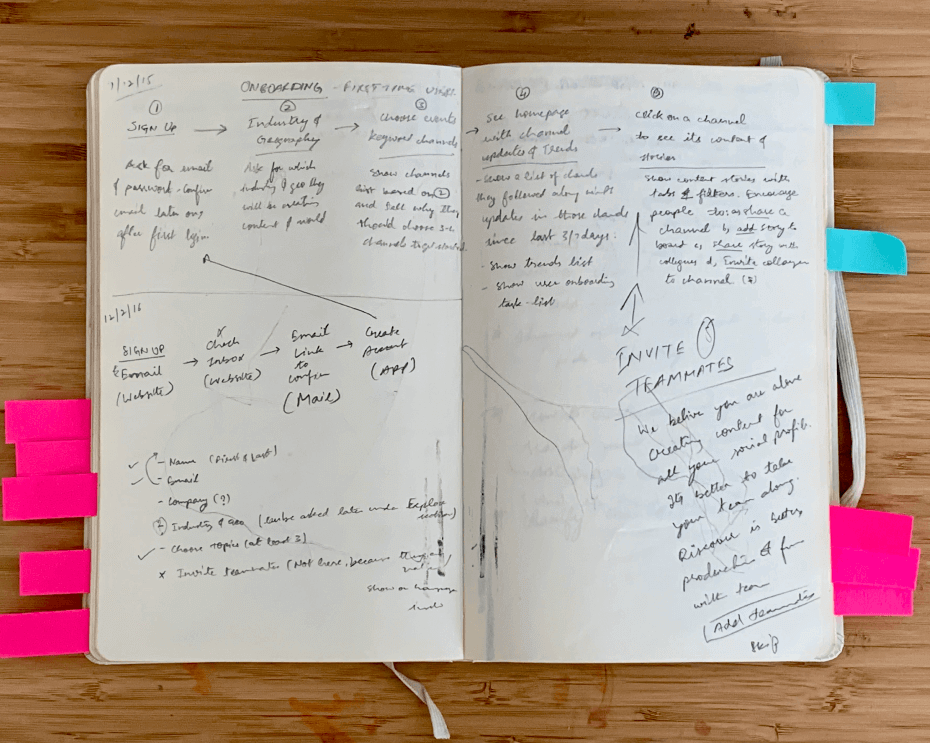 1/12/15
ONBOARDING - FIRST TIME USER
①
SIGN UP →
Ask for email
& password - confirm
email later on,
after first login
②
Industry &
Geography →
Ask for which
industry & geo they
will be creating
content & world
③
Choose events
keyword channels →
Show channels
list based on ②
and tell why they
should choose 3-4
channels to get started
④
See homepage
with channel →
updates & Trends
- Show a list of
they followed along with
updates in those
since last 3/7 days.
- Show trends list
- Show user onboarding
task-list
⑤
Click on a channel
to see its content &
stories
Show content stories with
tabs & filters. Encourage
people to a, share a
channel b, add story to
board c, share story with
collegues d, Invite collegues
to channel.
12/2/16
SIGN UP
Email
(Website)
→ Check
Inbox
(Website)
→ Email
Link
to
confirm
(Mail)
→ Create
Account
(APP)
✓ - Name (First & Last)
✓ - Email
- Company (?)
② Industry & Geo (can be asked later under Explore
section)
✓ - Choose Topics (at least 3)
x Invite teammates (Not here, because they
show on homepage
INVITE ⑤
TEAMMATES
We belive you are alone
creating content for
all your social profile.
It's better to take
your team along.
Discover is better
productive & fun
with team
Add teammates
Skip